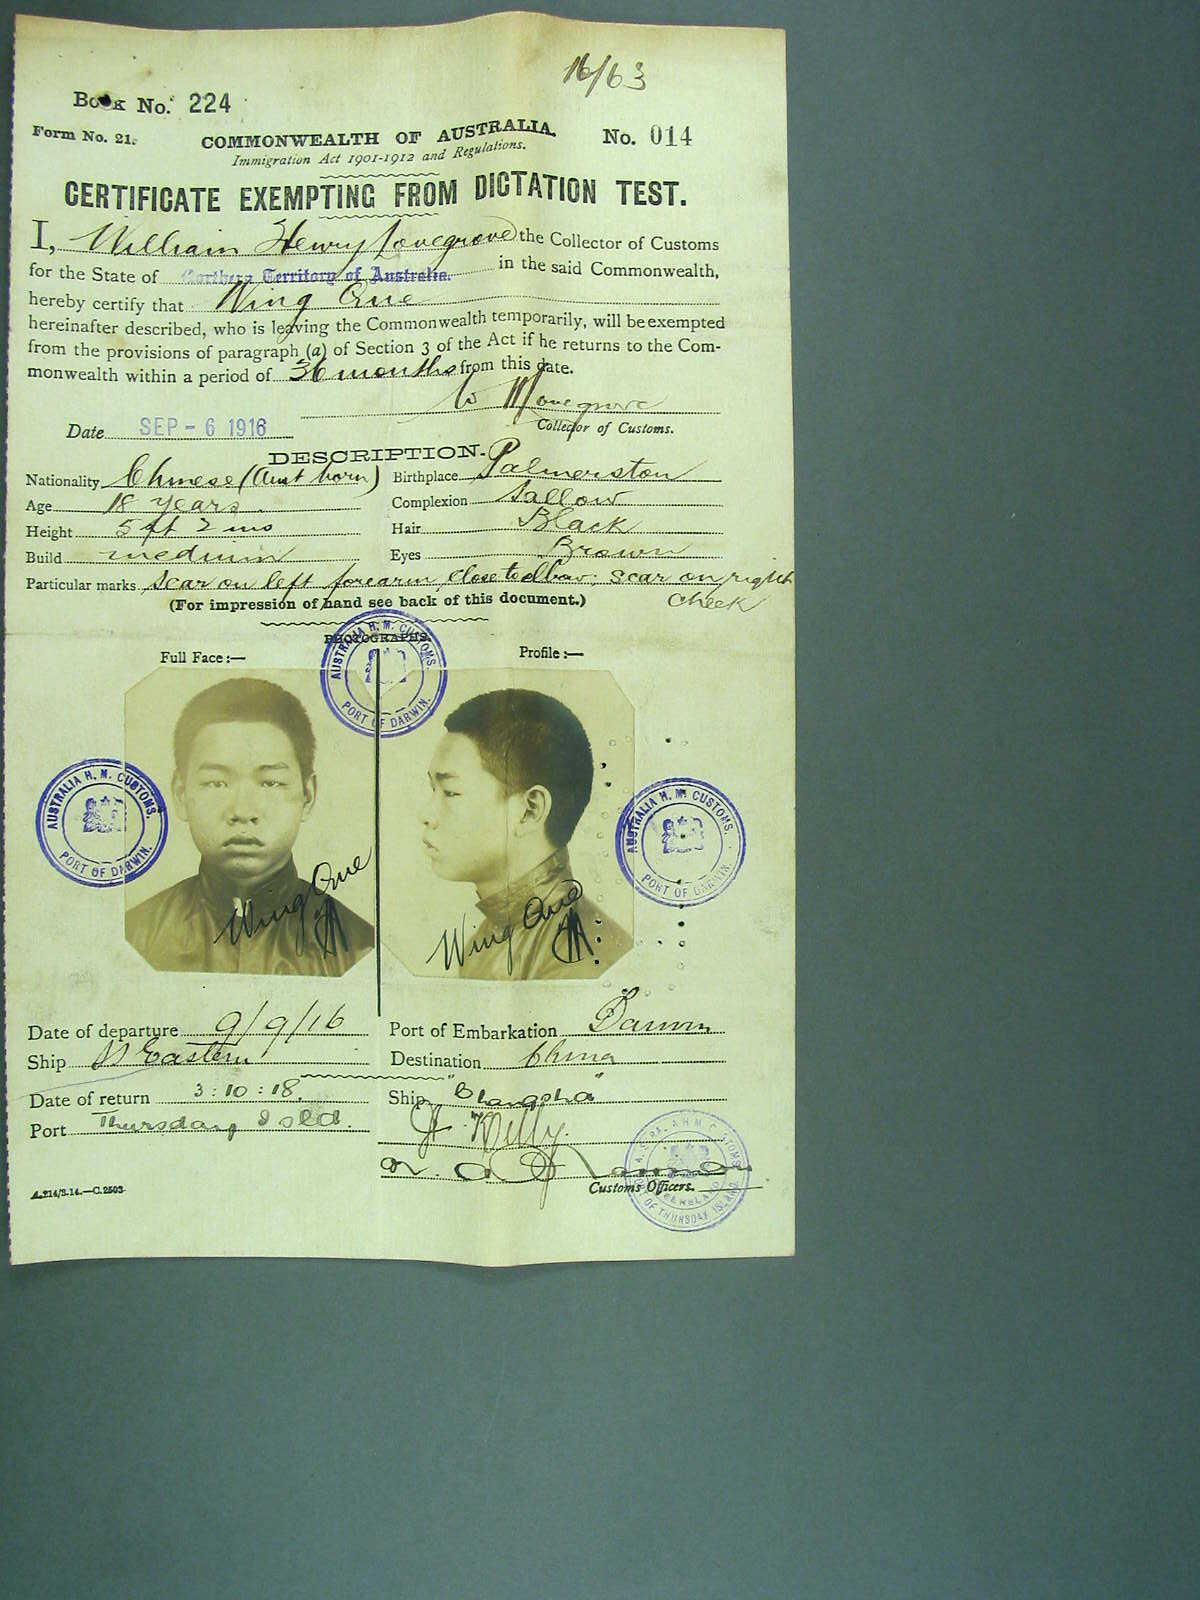 16/63
Book No. 224
Form No. 21.
COMMONWEALTH OF AUSTRALIA.
No. 014
Immigration Act 1901-1912 and Regulations.
CERTIFICATE EXEMPTING FROM DICTATION TEST.
I, William Henry Lovegrove the Collector of Customs
for the State of Northern Territory of Australia. in the said Commonwealth,
hereby certify that Wing Que
hereinafter described, who is leaving the Commonwealth temporarily, will be exempted
from the provisions of paragraph (a) of Section 3 of the Act if he returns to the Com-
monwealth within a period of 36 months from this date.
W H Lovegrove
Collector of Customs.
Date SEP - 6 1916
DESCRIPTION.
Nationality Chinese (Aust born) Birthplace Palmerston
Age 18 years Complexion Sallow
Height 5 ft 2 ins Hair Black
Build medium Eyes Brown
Particular marks scar on left forearm, close to elbow; scar on right
cheek
(For impression of hand see back of this document.)
PHOTOGRAPHS.
Full Face :— Profile :—
AUSTRALIA H. M. CUSTOMS. PORT OF DARWIN.
AUSTRALIA H. M. CUSTOMS. PORT OF DARWIN.
AUSTRALIA H. M. CUSTOMS. PORT OF DARWIN.
Wing Que
Wing Que
Date of departure 9/9/16 Port of Embarkation Darwin
Ship SS Eastern Destination China
Date of return 3:10:18. Ship "Changsha"
Port Thursday Isld.
Kelly.
Customs Officers.
PORT OF THURSDAY ISLAND
A.214/3.14.—C.2503